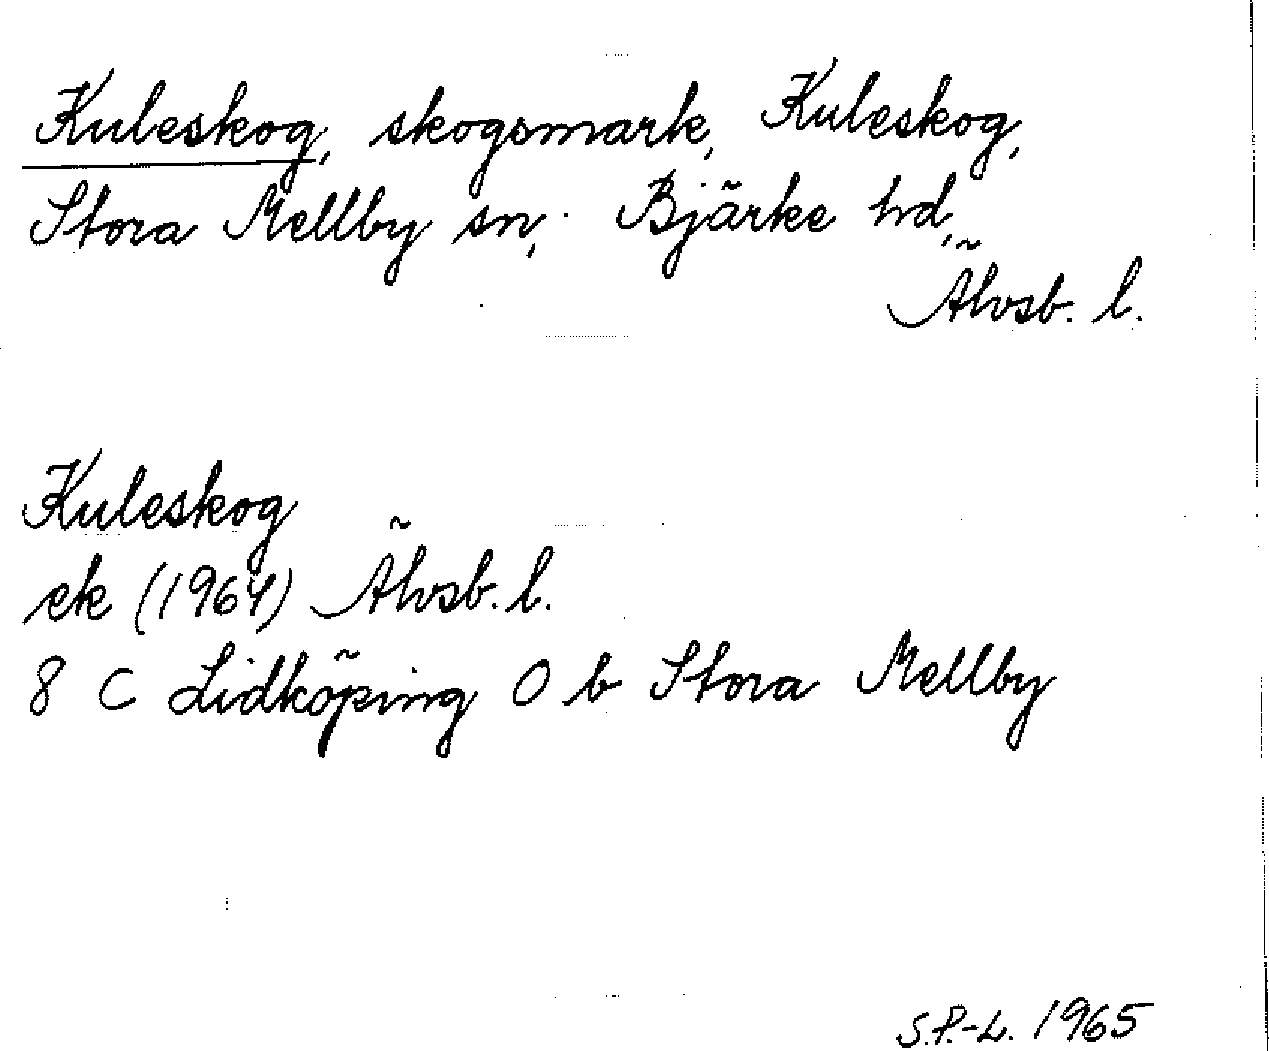 Kuleskog, skogsmark, Kuleskog,
Stora Mellby sn, Bjärke hd,
Älvsb. l.
Kuleskog
ek (1964) Älvsb. l.
8 C Lidköping O b Stora Mellby
S.P.-L. 1965